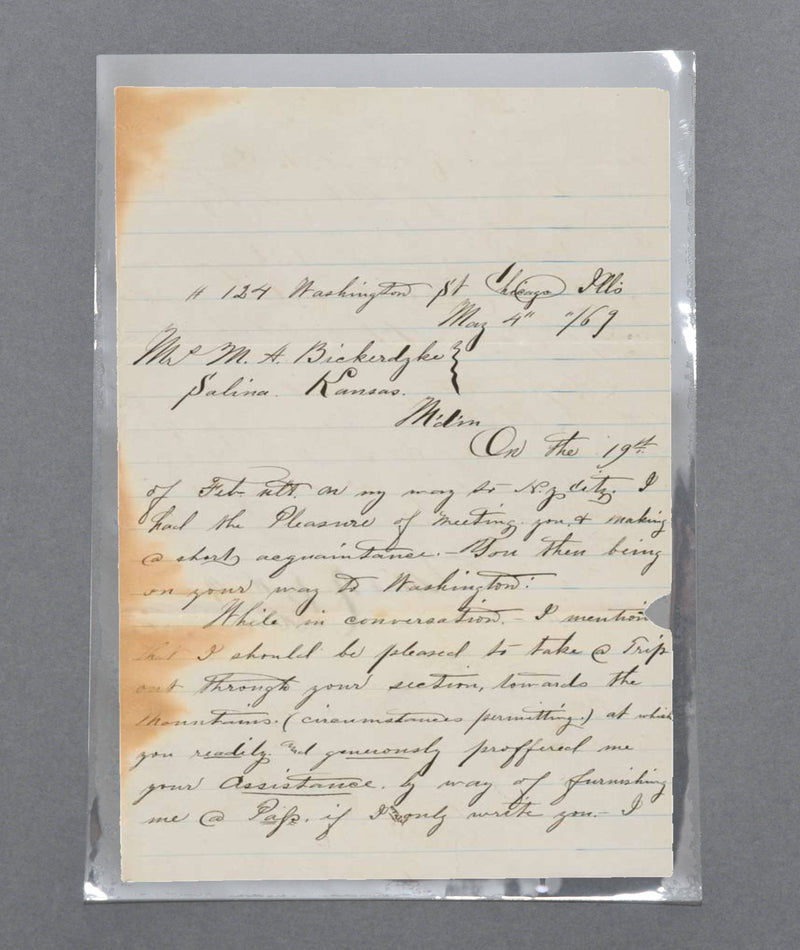 # 124 Washington St Chicago Ills
May 4" "/69
Mrs M. A. Bickerdyke
Salina. Kansas.
M'd'm
On the 19th
of Feb. ult. on my way to N.y city. I
had the Pleasure of meeting you, & making
a short acquaintance. – You then being
on your way to Washington:
While in conversation. – I mention
that I should be pleased to take a Trip
out through your section, towards the
Mountains. (circumstances permitting.) at which
you readily and generously proffered me
your Assistance. by way of furnishing
me a Pass. if I only write you. – I